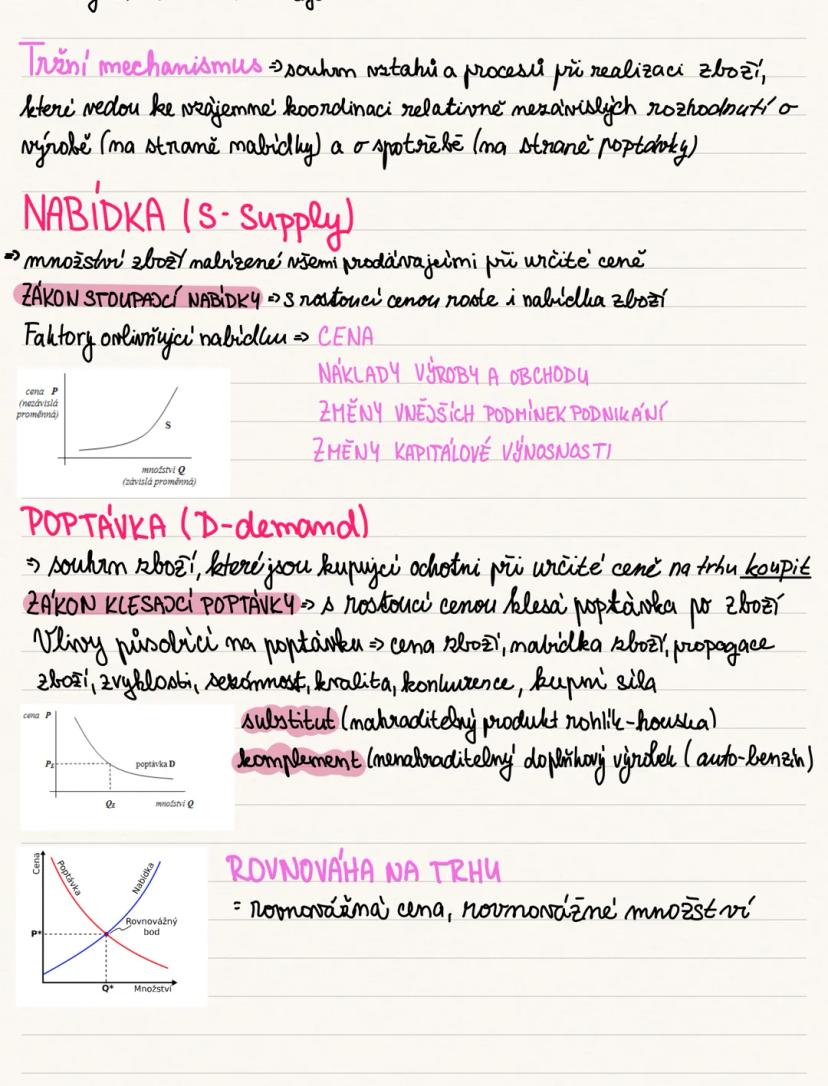 Tržní mechanismus => souhrn vztahů a procesů při realizaci zboží,
které vedou ke vzájemné koordinaci relativně nezávislých rozhodnutí o
výrobě (na straně nabídky) a o spotřebě (na straně poptávky)
NABÍDKA (S- Supply)
=> množství zboží nabízené všemi prodávajícími při určité ceně
ZÁKON STOUPAJCÍ NABÍDKY => s rostoucí cenou roste i nabídka zboží
Faktory ovlivňujcí nabídku => CENA
NÁKLADY VÝROBY A OBCHODU
ZMĚNY VNĚJŠÍCH PODMÍNEK PODNIKÁNÍ
ZMĚNY KAPITÁLOVÉ VÝNOSNOSTI
cena P
(nezávislá
proměnná)
S
množství Q
(závislá proměnná)
POPTÁVKA (D-demand)
=> souhrn zboží, které jsou kupujcí ochotni při určité ceně na trhu koupit
ZÁKON KLESAJCÍ POPTÁVKY => s rostoucí cenou klesá poptávka po zboží
Vlivy působící na poptávku => cena zboží, nabídka zboží, propagace
zboží, zvyklosti, sezónnost, kvalita, konkurence, kupní síla
substitut (nahraditelný produkt rohlík-houska)
komplement (nenahraditelný doplňkový výrobek (auto-benzín)
cena P
PE
poptávka D
QE
množství Q
ROVNOVÁHA NA TRHU
= rovnovážná cena, rovnovážné množství
Cena
Poptávka
Nabídka
Rovnovážný
bod
P*
Q*
Množství